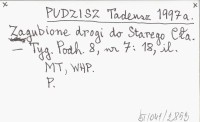 PUDZISZ Tadeusz 1997a.
Zagubione drogi do Starego Cła.
— Tyg. Podh. 8, nr 7: 18, il.
MT, WHP.
P.